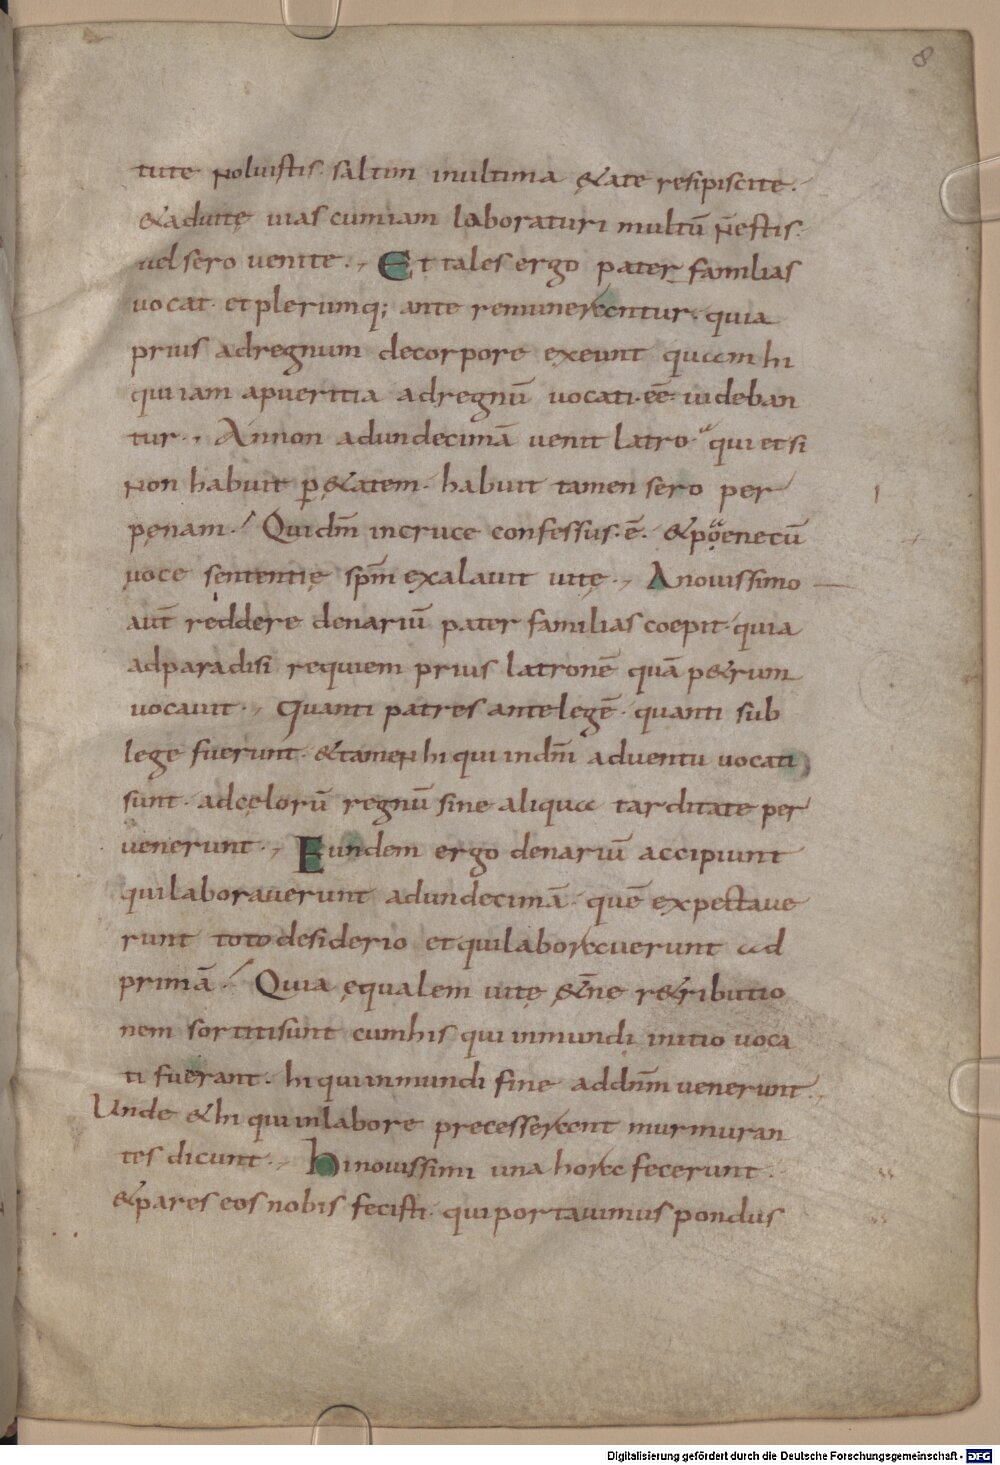 8
tute noluistis· saltim inultima &ate resipiscite·
&aduitę uias cumiam laboraturi multū n̄estis·
uel sero uenite·, Et tales ergo pater familias
uocat· et plerumq; ante remunerantur· quia
prius adregnum decorpore exeunt quam hi
quiiam apueritia adregnū uocati·eē· uideban
tur·, Annon adundecimā uenit latro· qui etsi
non habuit p̱ &atem· habuit tamen sero per
pęnam·/ Qui dm̄ incruce confessus·ē· &poenecū
uoce sententię spm̄ exalauit uitę·, Anouissimo
aut̄ reddere denariū pater familias coepit· quia
adparadisi requiem prius latronē quā p&rum
uocauit·, Quanti patres antelegē· quanti sub
lege fuerunt· &tamen hi qui indn̄i aduentu uocati
sunt· adcęlorū regnū sine aliqua tarditate per
uenerunt·, Eundem ergo denariū accipiunt
quilaborauerunt adundecimā· quē expectaue
runt toto desiderio et quilaborauerunt ad
primā·/ Quia ęqualem uitę &n̄ę r&ributio
nem sortitisunt cumhis qui inmundi initio uoca
ti fuerant· hi quiinmundi fine addn̄m uenerunt·,
Unde &hi qui inlabore precesserant murmuran
tes dicunt·, hi nouissimi una hora fecerunt·
&pares eos nobis fecisti· qui portauimus pondus
Digitalisierung gefördert durch die Deutsche Forschungsgemeinschaft - DFG